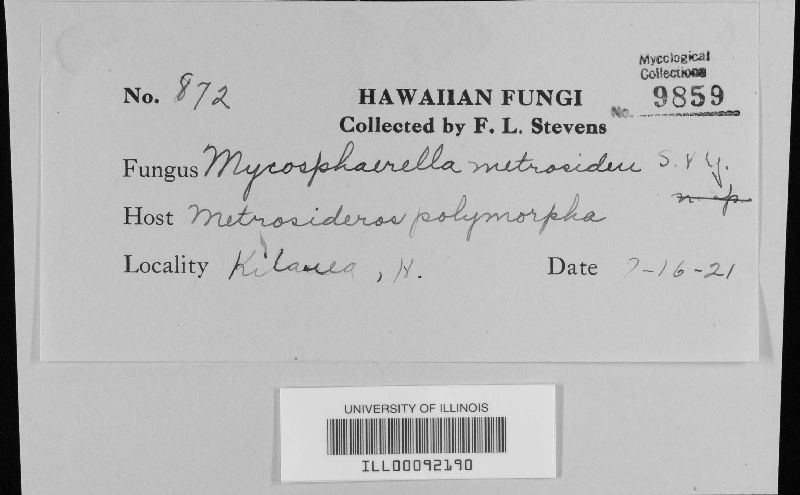 Mycological
Collections
No. 9859
No. 872
HAWAIIAN FUNGI
Collected by F. L. Stevens
Fungus Mycosphaerella metrosideri S. & Y.
n. sp
Host Metrosideros polymorpha
Locality Kilauea, H. Date 7-16-21
UNIVERSITY OF ILLINOIS
ILL00092190